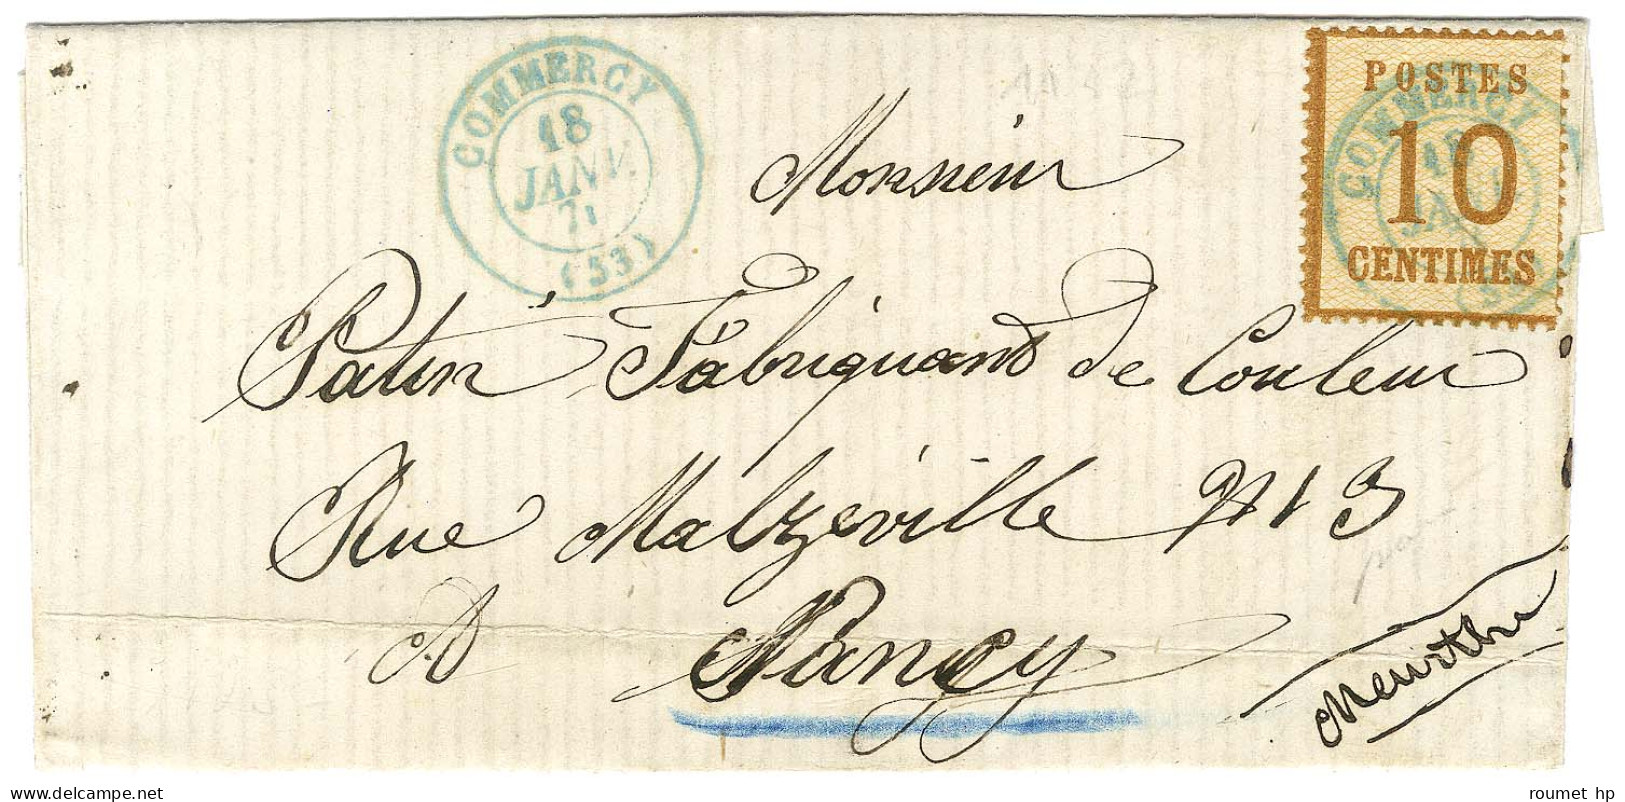 COMMERCY
18
JANV.
71
(53)
POSTES
10
CENTIMES
COMMERCY
18
JAN
Monsieur
Patin Fabriquant de Couleur
Rue Malzeville N 13
A Nancy
Meurthe
roumet hp